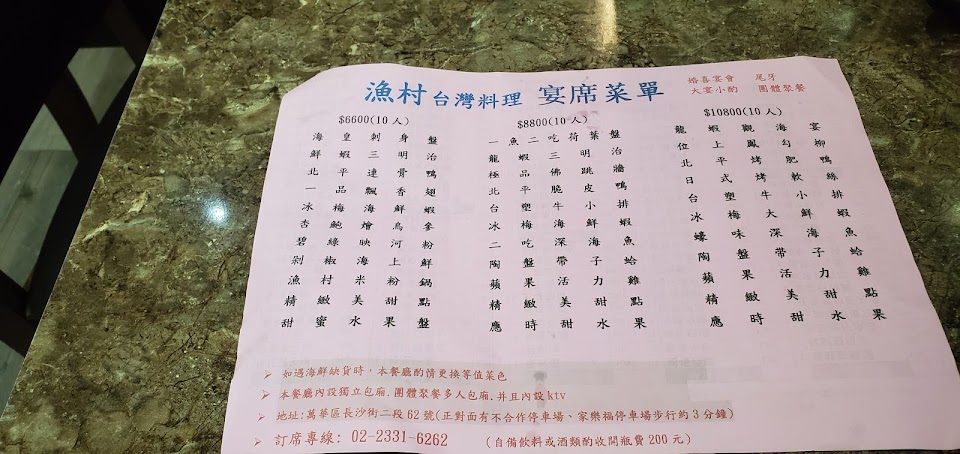 漁村 台灣料理 宴席菜單
婚喜宴會 尾牙
大宴小酌 團體聚餐
$6600(10人)
海皇刺身盤
鮮蝦三明治
北平連骨鴨
一品飄香翅
冰梅海鮮蝦
杏鮑燴烏參
碧綠映河粉
剁椒海上鮮
漁村米粉鍋
精緻美甜點
甜蜜水果盤
$8800(10人)
一魚二吃荷葉盤
龍蝦三明治
極品佛跳牆
北平脆皮鴨
台塑牛小排
冰梅海鮮蝦
二吃深海魚
陶盤帶子蛤
蘋果活力雞
精緻美甜點
應時甜水果
$10800(10人)
龍蝦觀海宴
位上鳳勾柳
北平烤肥鴨
日式烤軟絲
台塑牛小排
冰梅大鮮蝦
蠔味深海魚
陶盤帶子蛤
蘋果活力雞
精緻美甜點
應時甜水果
➢ 如遇海鮮缺貨時,本餐廳酌情更換等值菜色
➢ 本餐廳內設獨立包廂.團體聚餐多人包廂.并且內設ktv
➢ 地址:萬華區長沙街二段62號(正對面有不合作停車場、家樂福停車場步行約3分鐘)
➢ 訂席專線: 02-2331-6262 (自備飲料或酒類酌收開瓶費200元)